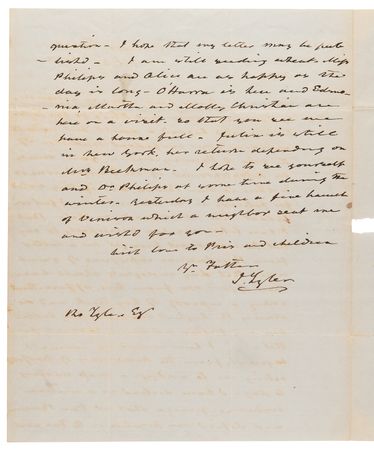 question - I hope that my letter may be pub
- lished - I am still sending wheat. Miss
Philips and Alice are as happy as the
day is long - O'Harra is here and
Martha and Molly Christian are
here on a visit. so that you see we
have a house full - Julia is still
in New York, her return depending on
Mrs Beekman. I hope to see yourself
and Dr Philips at some time during the
winter. Yesterday I have a fine haunch
of Venison which a neighbor sent me
and wish'd for you -
with love to Pris and children
Yr Father
J. Tyler
Ro Tyler Esq